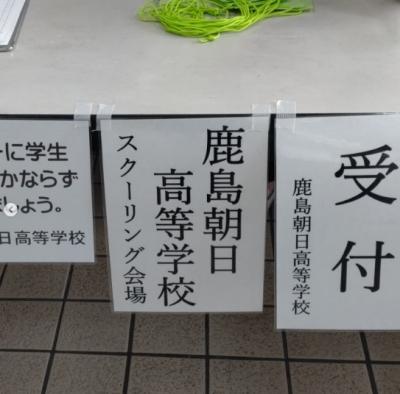 ーに学生
かならず
しょう。
日高等学校
鹿島朝日
高等学校
スクーリング会場
受付
鹿島朝日高等学校